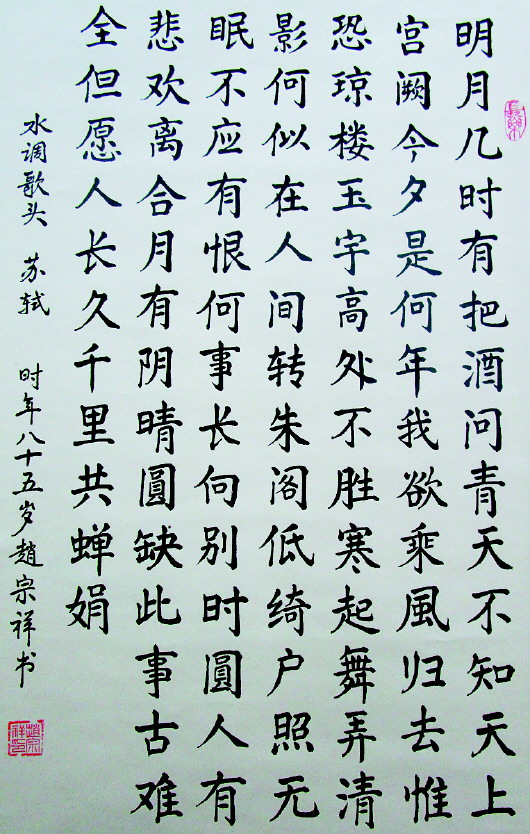 明月几时有把酒问青天不知天上
宫阙今夕是何年我欲乘風归去惟
恐琼楼玉宇高处不胜寒起舞弄清
影何似在人间转朱阁低绮户照无
眠不应有恨何事长向别时圓人有
悲欢离合月有阴晴圓缺此事古难
全但愿人长久千里共蝉娟
水调歌头 苏轼 时年八十五岁趙宗祥书
趙宗祥印